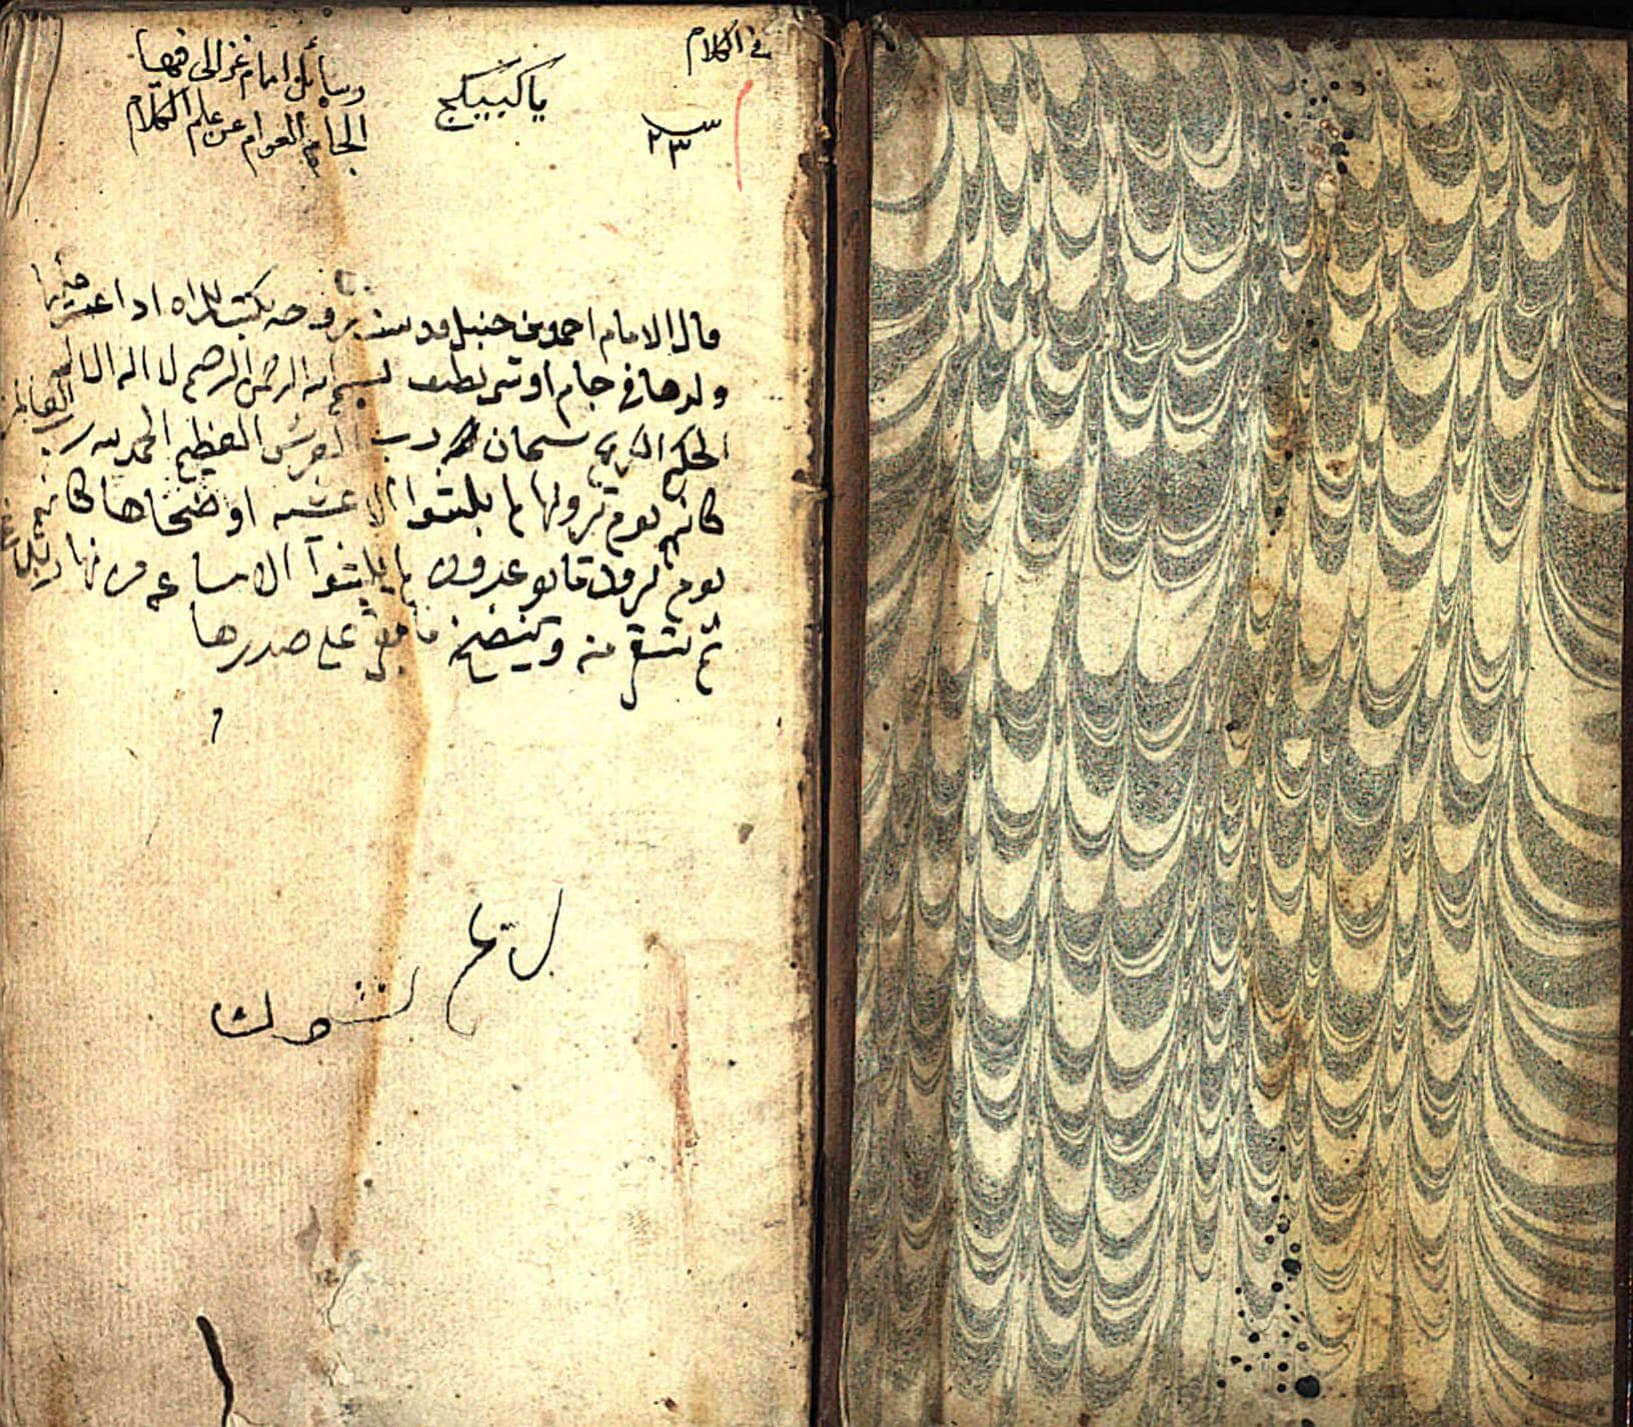 في الكلام
٢٣
يا كبيكج
رسائل امام غزالى فيها
الجام العوام عن علم الكلام
قال الامام احمد بن حنبل يكتب للمراه اذا عسر عليها
ولدها في جام او شى نظيف بسم الله الرحمن الرحيم لا اله الا الله
الحليم الكريم سبحان الله رب العرش العظيم الحمد لله رب العالمين
كانهم يوم يرونها لم يلبثوا الا عشية او ضحاها كانهم
يوم يرون ما يوعدون لم يلبثوا الا ساعة من نهار بلاغ
ثم تسقى منه وينضح ما بقى على صدرها